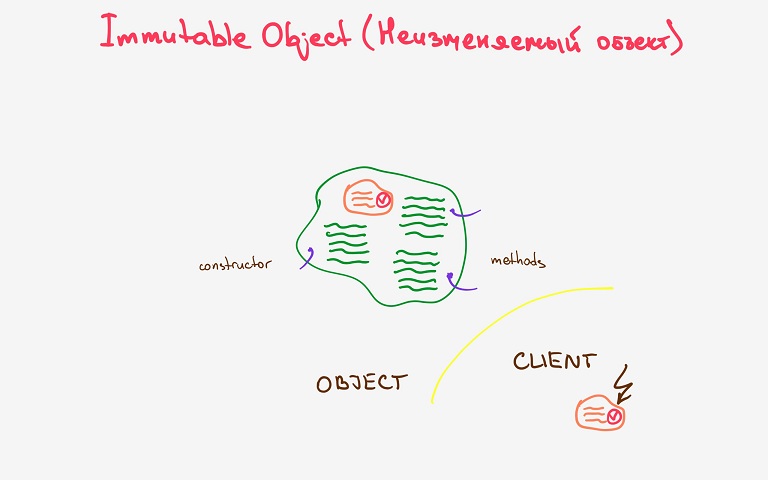 Immutable Object (Неизменяемый объект)
constructor
methods
OBJECT
CLIENT